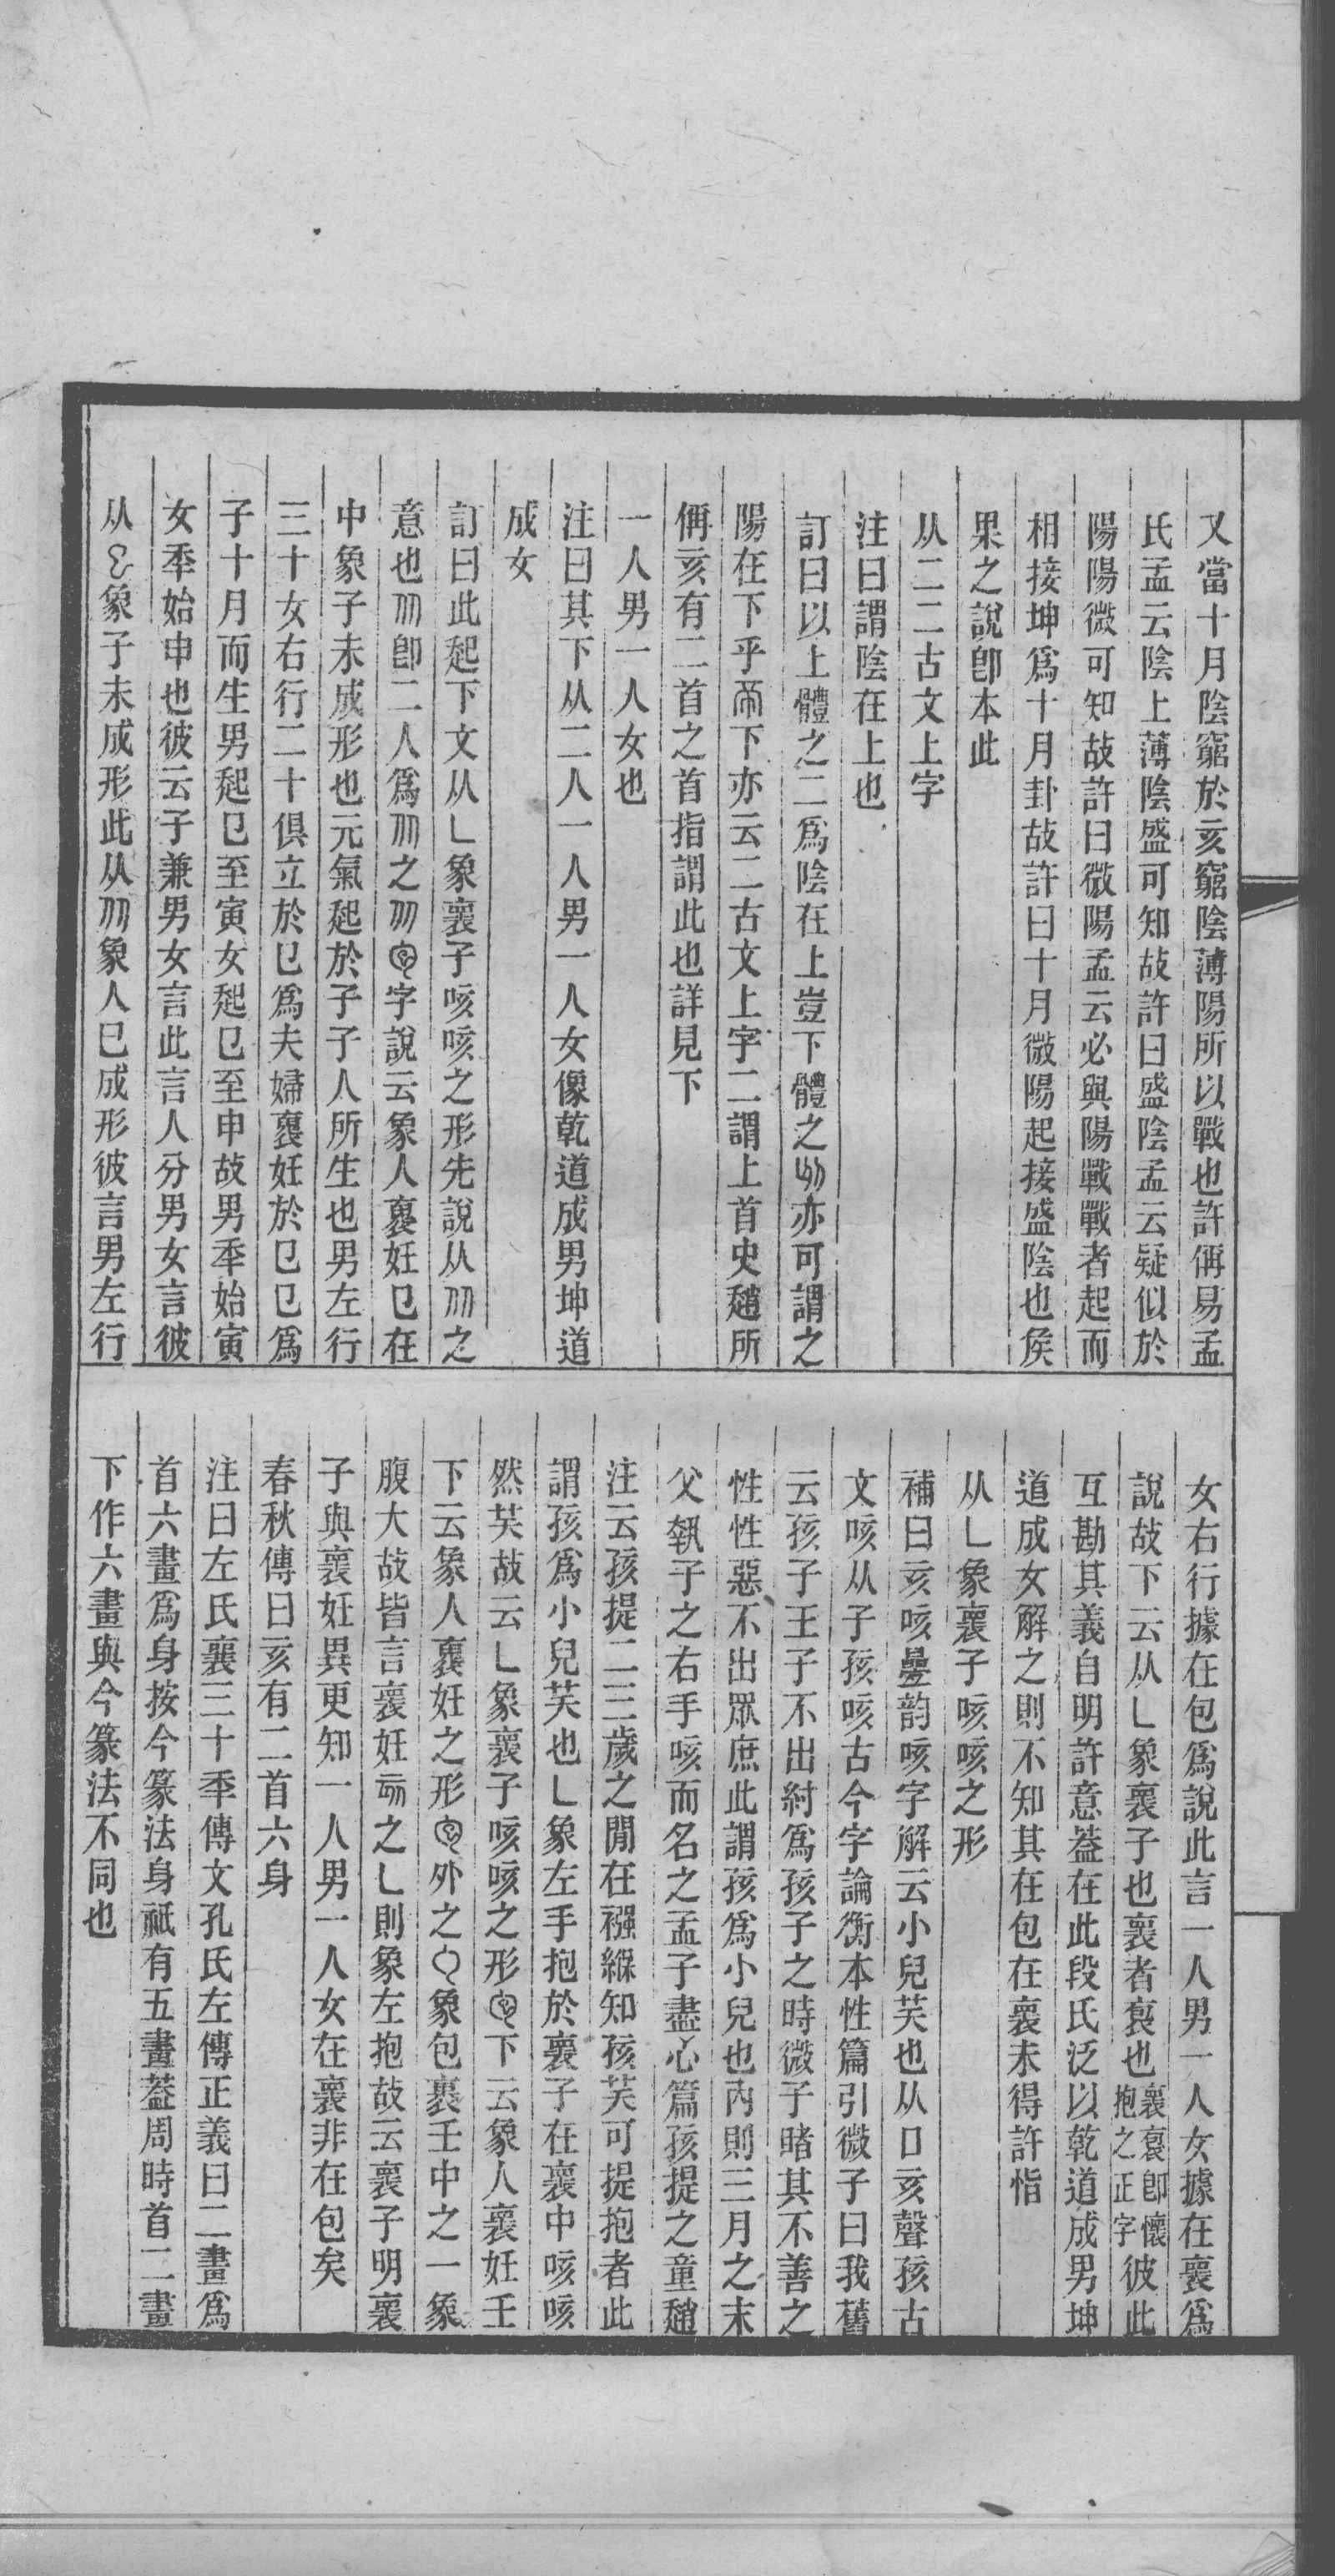 又當十月陰窮於亥窮陰薄陽所以戰也許偁易孟
氏孟云陰上薄陰盛可知故許曰盛陰孟云疑似於
陽陽微可知故許曰微陽孟云必與陽戰戰者起而
相接坤爲十月卦故許曰十月微陽起接盛陰也侯
果之說卽本此
从二二古文上字
注曰謂陰在上也
訂曰以上體之二爲陰在上豈下體之亦可謂之
陽在下乎下亦云二古文上字二謂上首史趙所
偁亥有二首之首指謂此也詳見下
一人男一人女也
注曰其下从二人一人男一人女像乾道成男坤道
成女
訂曰此起下文从乚象褱子咳咳之形先說从之
意也卽二人爲之字說云象人褢妊巳在
中象子未成形也元氣起於子子人所生也男左行
三十女右行二十俱立於巳爲夫婦褢妊於巳巳爲
子十月而生男起巳至寅女起巳至申故男秊始寅
女秊始申也彼云子兼男女言此言人分男女言彼
从象子未成形此从象人已成形彼言男左行
女右行據在包爲說此言一人男一人女據在褱爲
說故下云从乚象褱子也褱者袌也褱袌卽懷抱之正字彼此
互勘其義自明許意葢在此段氏泛以乾道成男坤
道成女解之則不知其在包在褱未得許恉
从乚象褱子咳咳之形
補曰亥咳曡韵咳字解云小兒芺也从口亥聲孩古
文咳从子孩咳古今字論衡本性篇引微子曰我舊
云孩子王子不出紂爲孩子之時微子睹其不善之
性性惡不出眾庶此謂孩爲小兒也內則三月之末
父執子之右手咳而名之孟子盡心篇孩提之童趙
注云孩提二三歲之閒在襁緥知孩芺可提抱者此
謂孩爲小兒芺也乚象左手抱於褱子在褱中咳咳
然芺故云乚象褱子咳咳之形下云象人褢妊壬
下云象人褢妊之形外之象包裹壬中之一象
腹大故皆言褢妊之乚則象左抱故云褱子明褱
子與褢妊異更知一人男一人女在褱非在包矣
春秋傳曰亥有二首六身
注曰左氏襄三十秊傳文孔氏左傳正義曰二畫爲
首六畫爲身按今篆法身祇有五畫葢周時首二畫
下作六畫與今篆法不同也